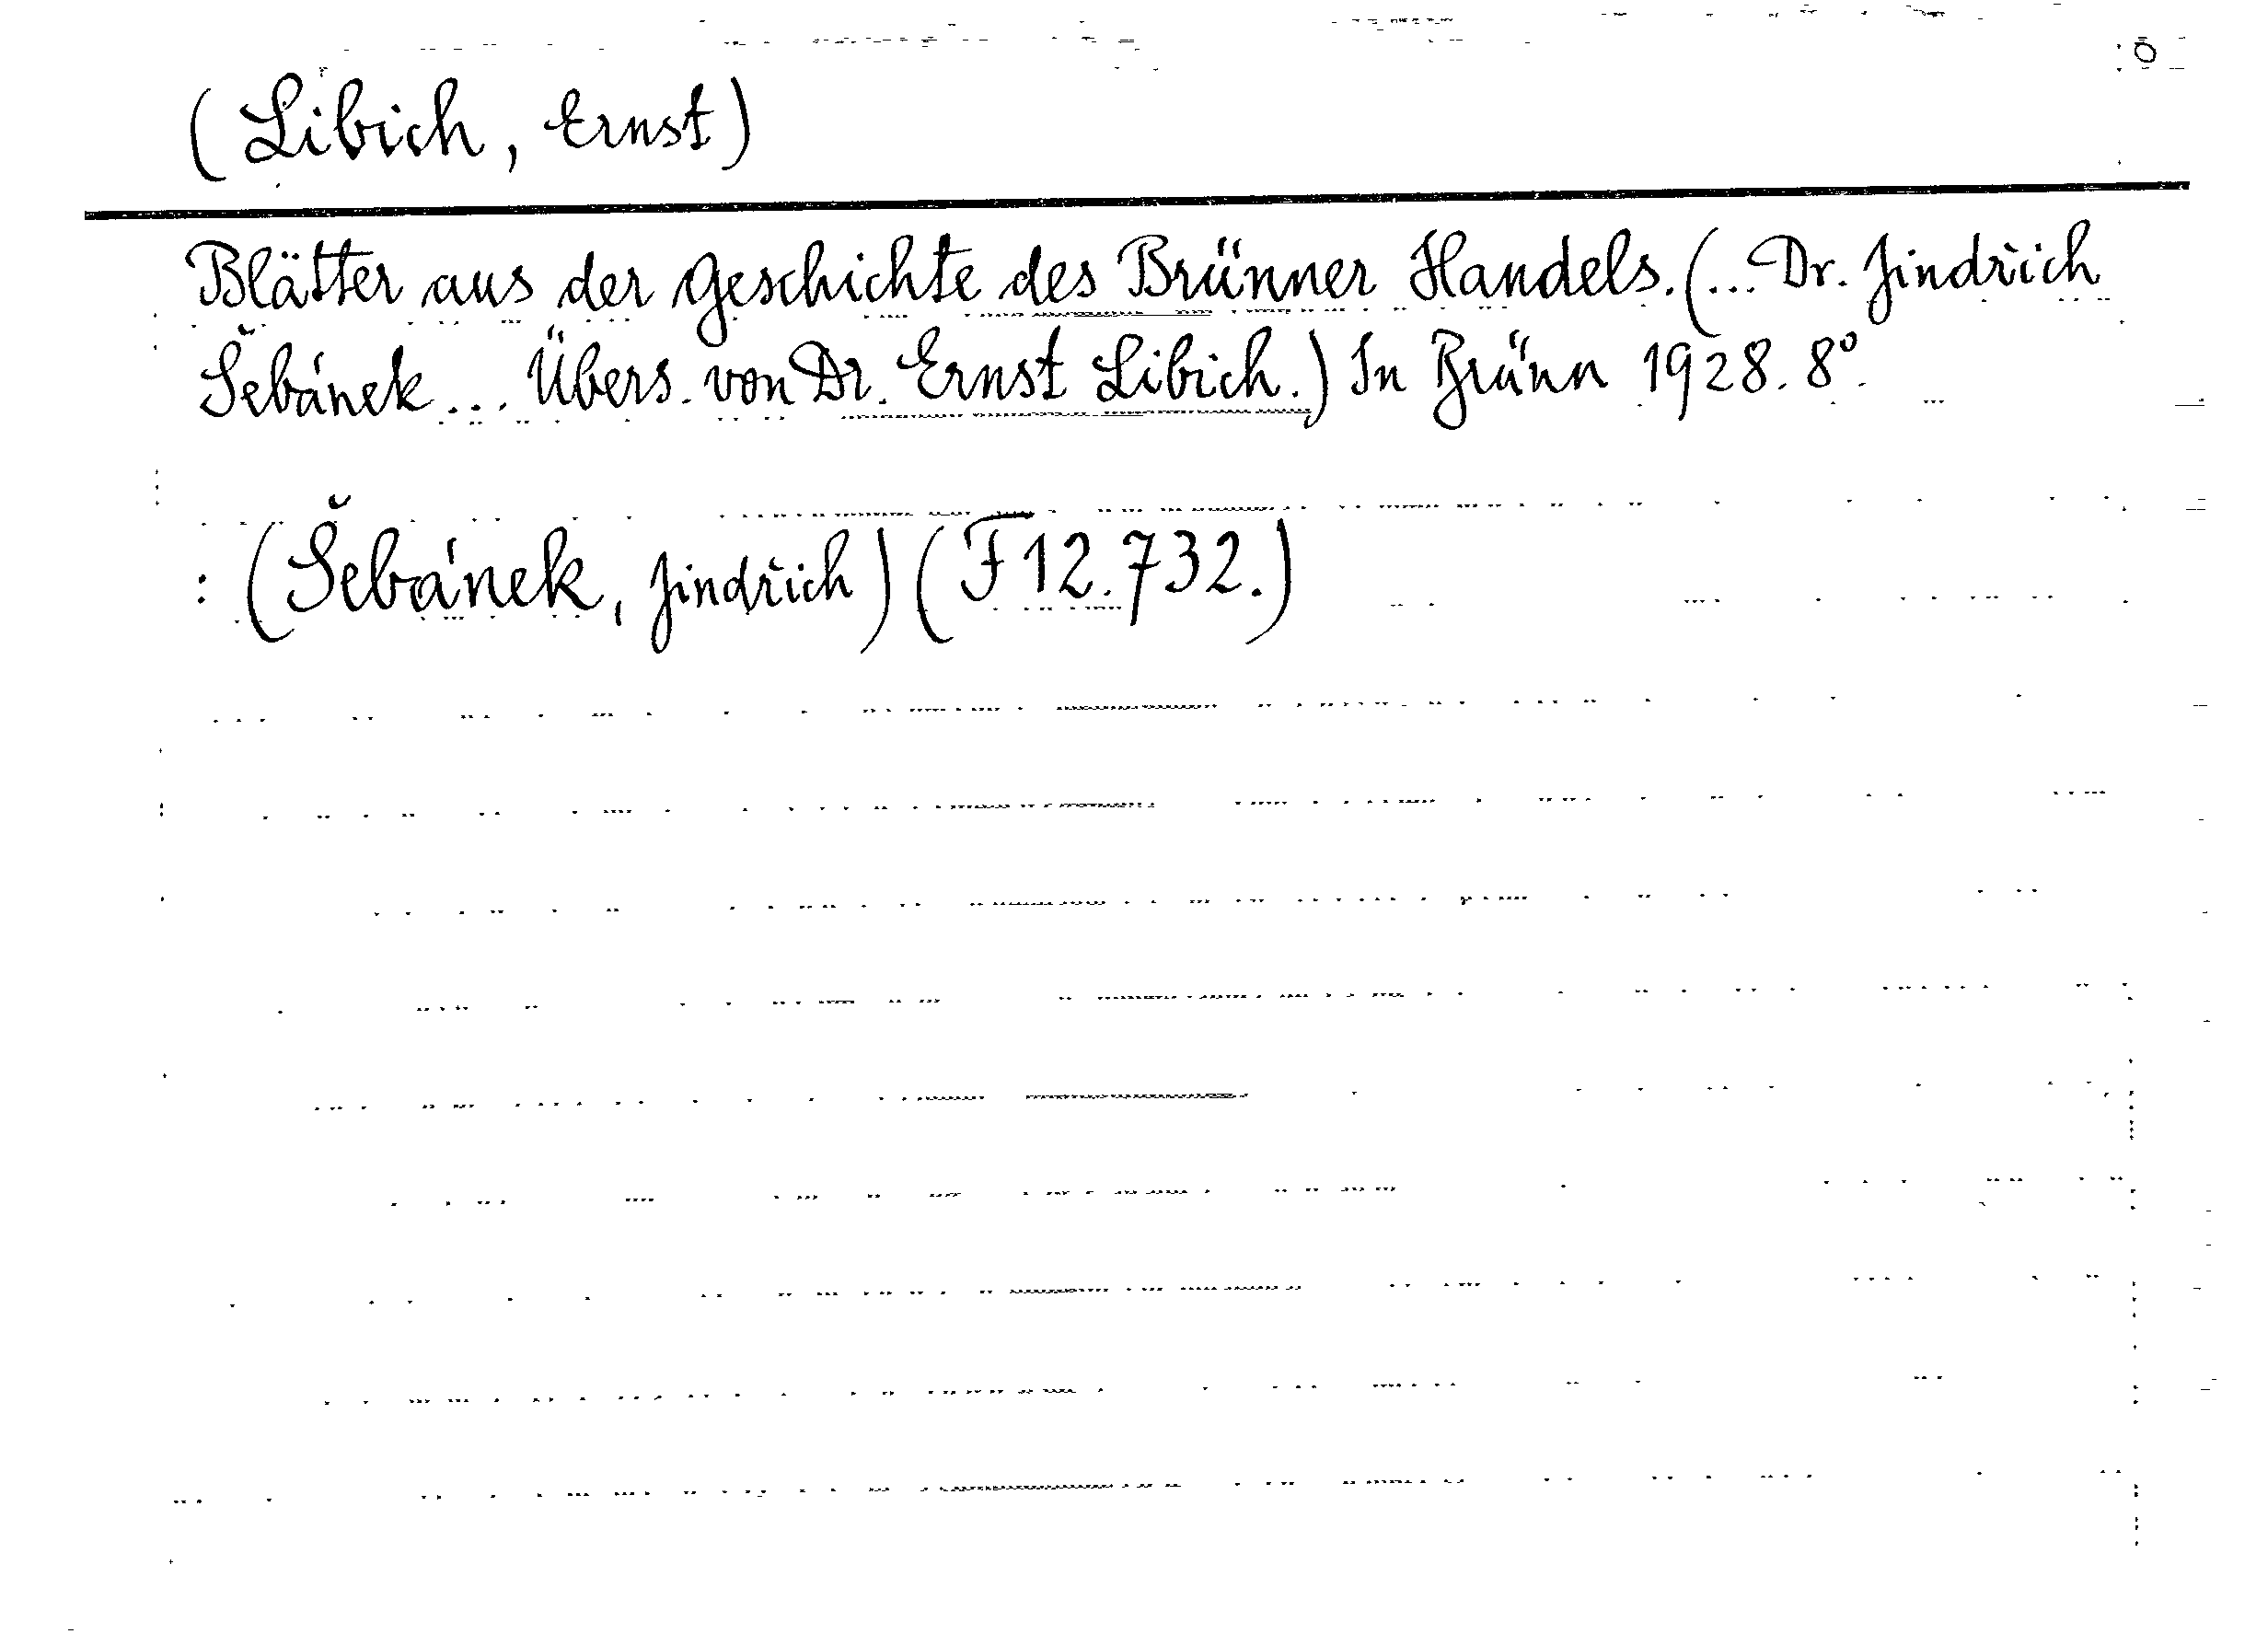 (Libich, Ernst)
Blätter aus der Geschichte des Brünner Handels. (... Dr. Jindřich
Šebánek ... Übers. von Dr. Ernst Libich.) In Brünn 1928. 8º.
: (Šebánek, Jindřich) (F 12.732.)